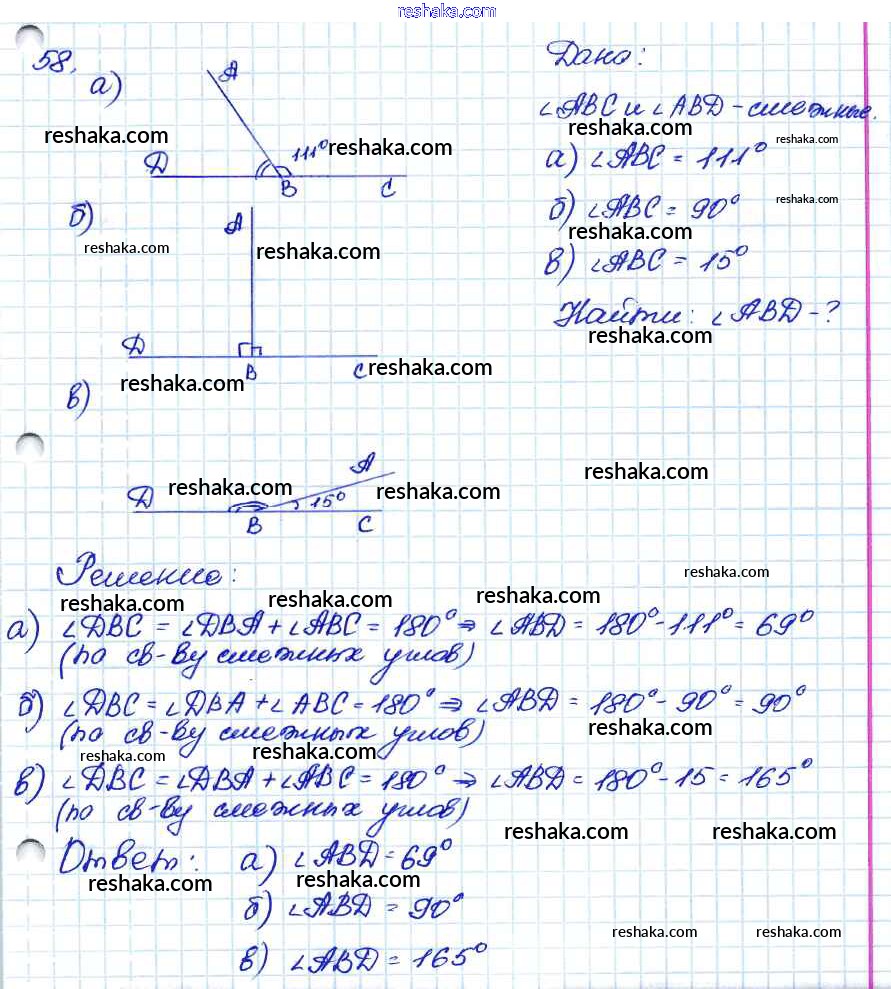 reshaka.com
58.
а)
A
111°
D
B
C
reshaka.com
reshaka.com
б)
A
reshaka.com
reshaka.com
D
B
C
reshaka.com
reshaka.com
в)
A
D
reshaka.com
15°
reshaka.com
B
C
Дано:
∠ABC и ∠ABD - смежные.
reshaka.com
reshaka.com
а) ∠ABC = 111°
б) ∠ABC = 90°
reshaka.com
reshaka.com
в) ∠ABC = 15°
Найти: ∠ABD - ?
reshaka.com
reshaka.com
Решение:
reshaka.com
reshaka.com
reshaka.com
reshaka.com
а) ∠DBC = ∠DBA + ∠ABC = 180° ⇒ ∠ABD = 180° - 111° = 69°
(по св-ву смежных углов)
б) ∠DBC = ∠DBA + ∠ABC = 180° ⇒ ∠ABD = 180° - 90° = 90°
(по св-ву смежных углов)
reshaka.com
reshaka.com
reshaka.com
в) ∠DBC = ∠DBA + ∠ABC = 180° ⇒ ∠ABD = 180° - 15 = 165°
(по св-ву смежных углов)
reshaka.com
reshaka.com
Ответ: а) ∠ABD = 69°
reshaka.com
reshaka.com
б) ∠ABD = 90°
reshaka.com
reshaka.com
в) ∠ABD = 165°